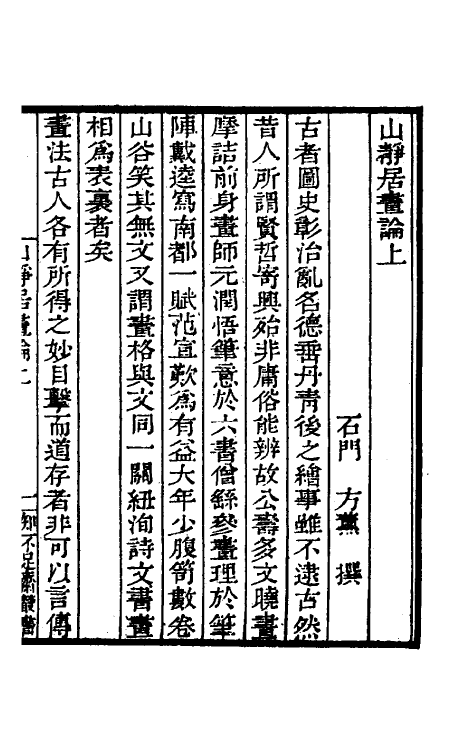 山靜居畫論上
石門 方薰 撰
古者圖史彰治亂名德垂丹青後之繪事雖不逮古然
昔人所謂賢哲寄興殆非庸俗能辨故公壽多文曉畫
摩詰前身畫師元潤悟筆意於六書僧繇參畫理於筆
陣戴逵寫南都一賦范宣歎為有益大年少腹笥數卷
山谷笑其無文又謂畫格與文同一關紐洵詩文書畫
相為表裏者矣
畫法古人各有所得之妙目擊而道存者非可以言傳
山靜居畫論上 一 知不足齋叢書